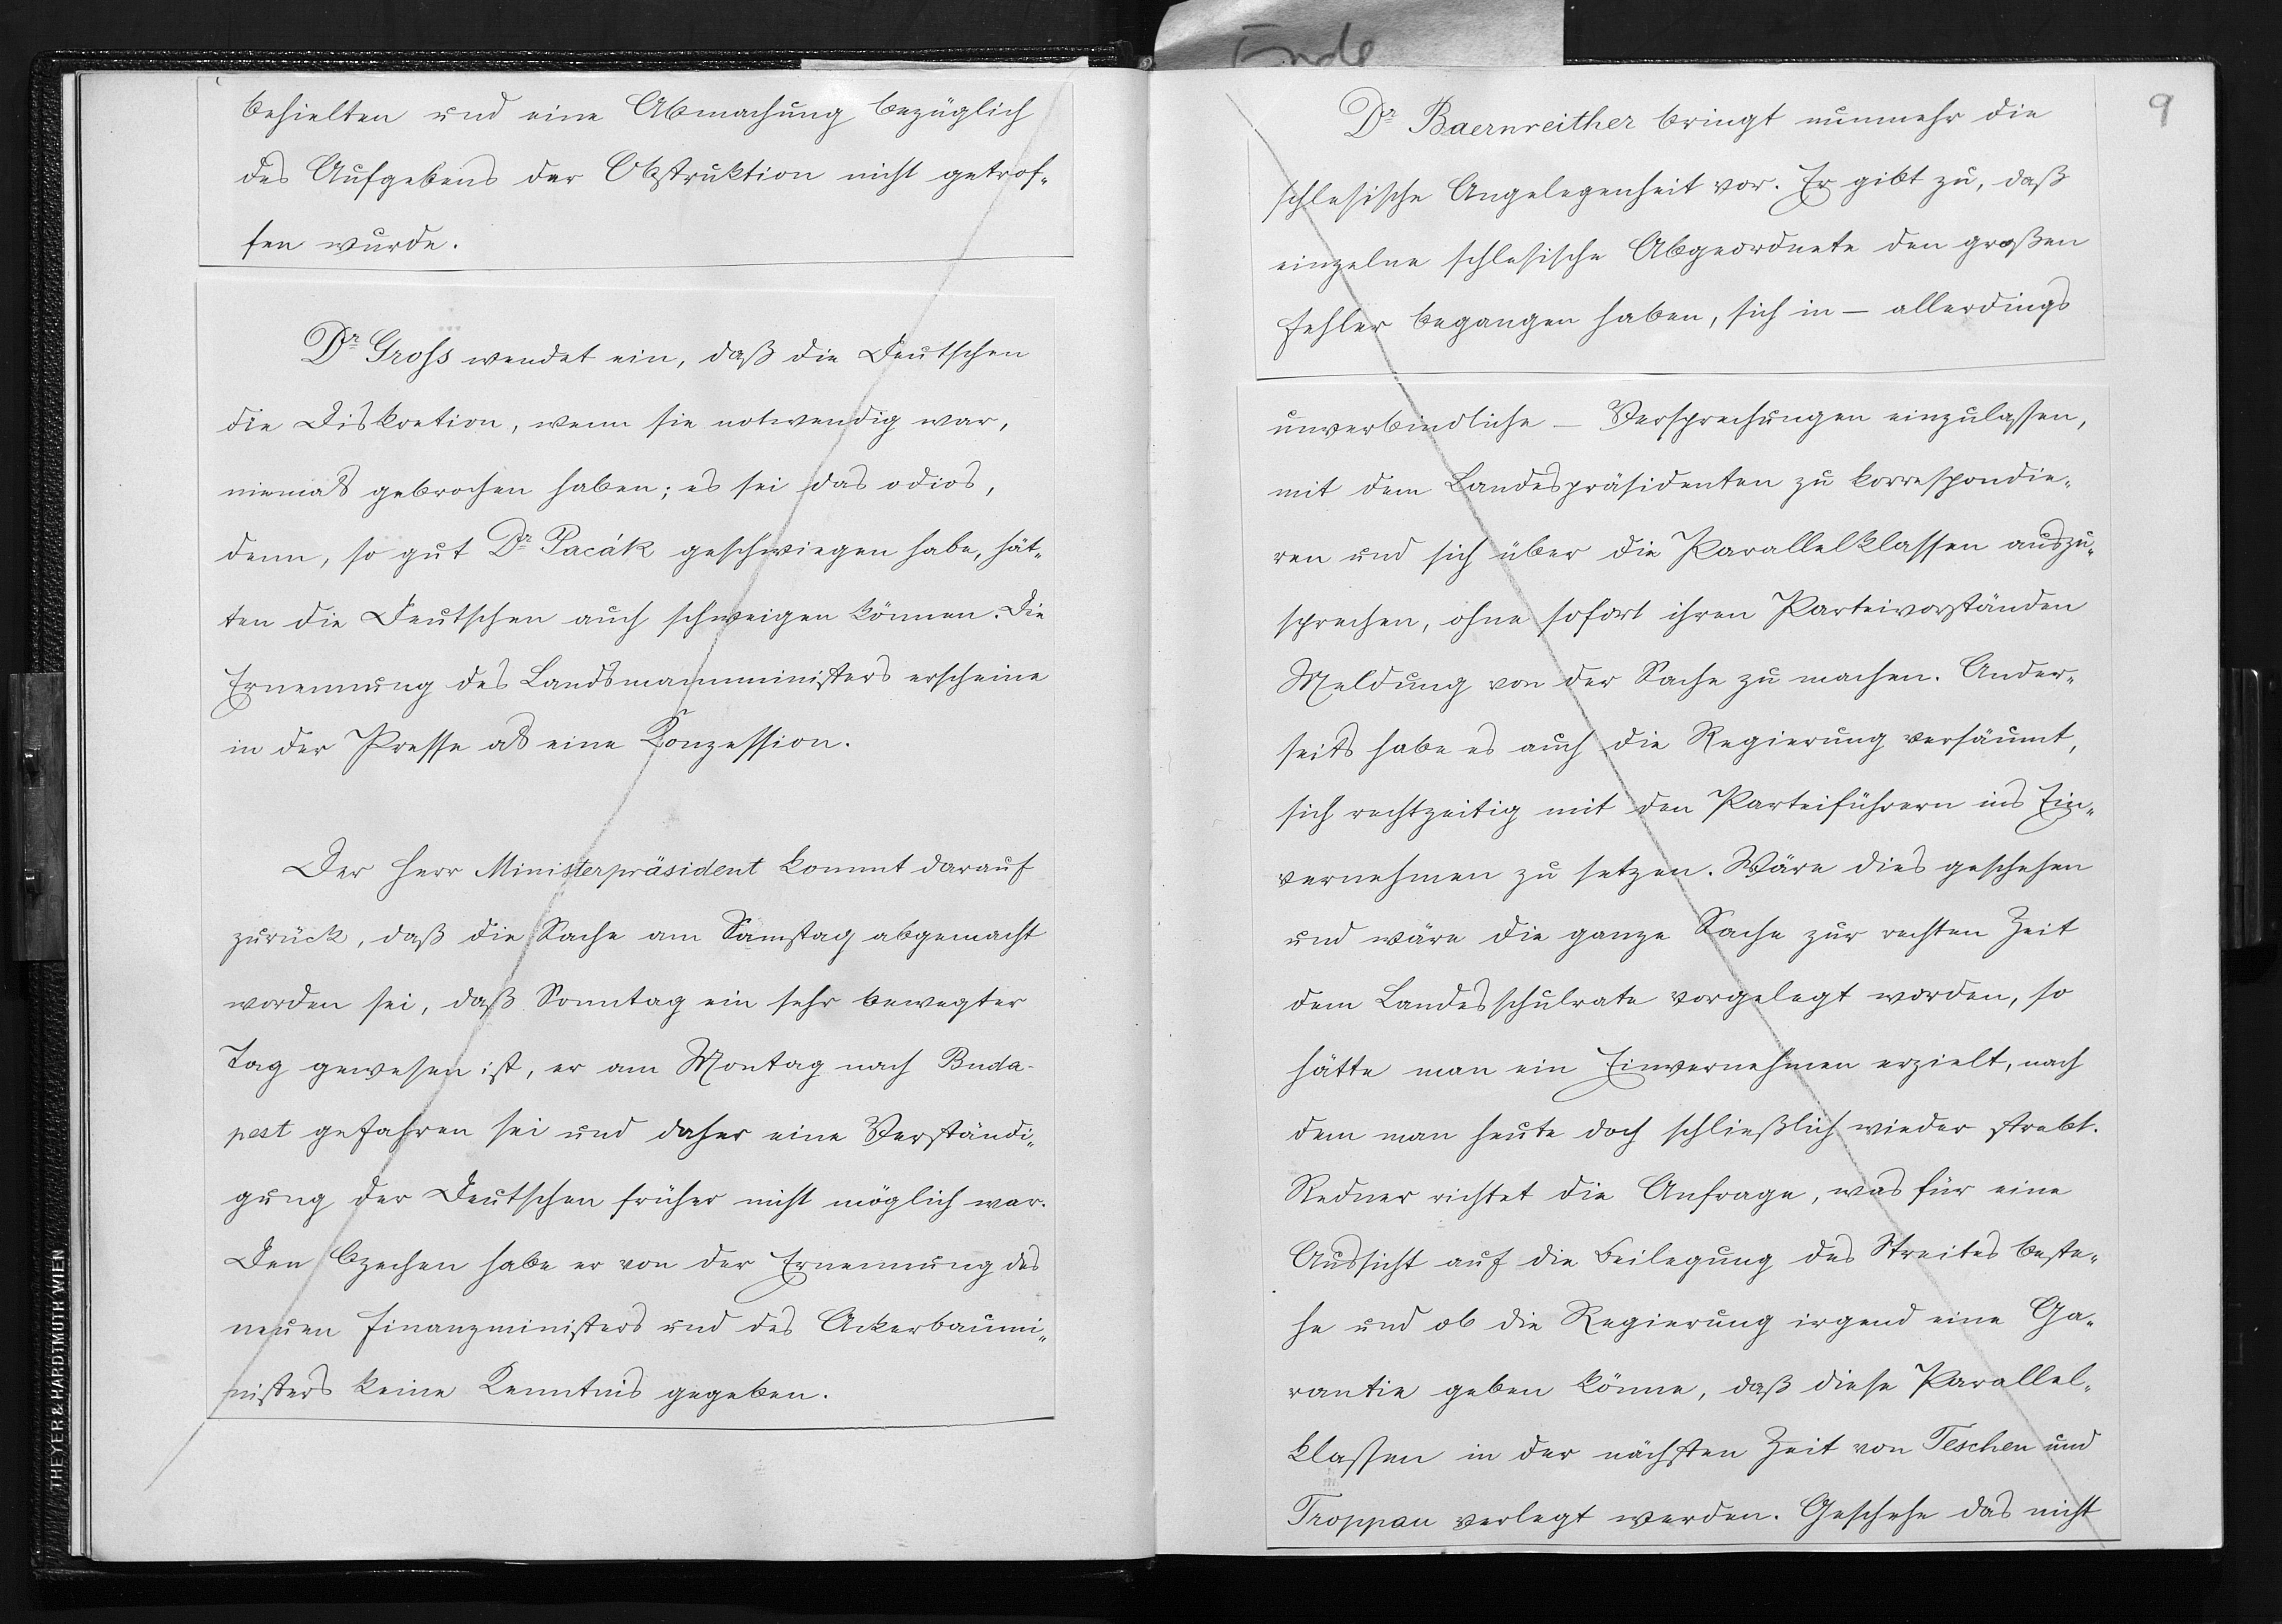 Ende
behielten und eine Abmachung bezüglich
des Aufgebens der Obstruktion nicht getrof-
fen wurde.
Dr Gross wendet ein, daß die Deutschen
die Diskretion, wenn sie notwendig war,
niemals gebrochen haben; es sei das odios,
denn, so gut Dr Pacák geschwiegen habe, hät-
ten die Deutschen auch schweigen können. Die
Ernennung des Landsmannministers erscheine
in der Presse als eine Konzession.
Der Herr Ministerpräsident kommt darauf
zurück, daß die Sache am Samstag abgemacht
worden sei, daß Sonntag ein sehr bewegter
Tag gewesen ist, er am Montag nach Buda-
pest gefahren sei und daher eine Verständi-
gung der Deutschen früher nicht möglich war.
Den Czechen habe er von der Ernennung des
neuen Finanzministers und des Ackerbaumi-
nisters keine Kenntnis gegeben.
THEYER & HARDTMUTH WIEN
9
Dr Baernreither bringt nunmehr die
schlesische Angelegenheit vor. Er gibt zu, daß
einzelne schlesische Abgeordnete den großen
Fehler begangen haben, sich in – allerdings
unverbindliche – Versprechungen einzulassen,
mit dem Landespräsidenten zu korrespondie-
ren und sich über die Parallelklassen auszu-
sprechen, ohne sofort ihren Parteivorständen
Meldung von der Sache zu machen. Ander-
seits habe es auch die Regierung versäumt,
sich rechtzeitig mit den Parteiführern ins Ein-
vernehmen zu setzen. Wäre dies geschehen
und wäre die ganze Sache zur rechten Zeit
dem Landesschulrate vorgelegt worden, so
hätte man ein Einvernehmen erzielt, nach
dem man heute doch schließlich wieder strebt.
Redner richtet die Anfrage, was für eine
Aussicht auf die Beilegung des Streites beste-
he und ob die Regierung irgend eine Ga-
rantie geben könne, daß diese Parallel-
klassen in der nächsten Zeit von Teschen und
Troppau verlegt werden. Geschehe das nicht